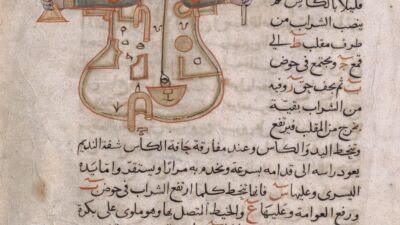 قليلا بالكأس ثم
ينصب الشراب من
طرف مقلب ط الى
قمع ويجتمع في حوض
ثم يخف حق روفيه
من الشراب بقية
تخرج من المقلب فيرتفع
وتنحط اليد والكأس وعند مفارقة حافة الكأس شفة النديم
يعود راسه الى قدامه بسرعة وتخدم به مرارا ويستقر واما يده
اليسرى وعليها فانما تنحط كلما ارتفع الشراب في حوض
ورفع العوامة وعليها ع والخيط المتصل بها وهو ملوى على بكرة